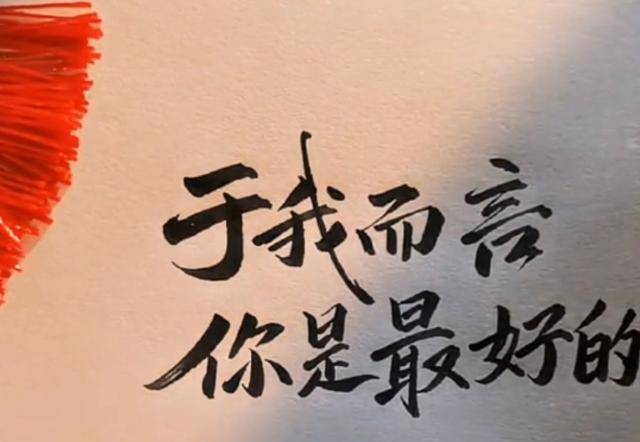 于我而言
你是最好的